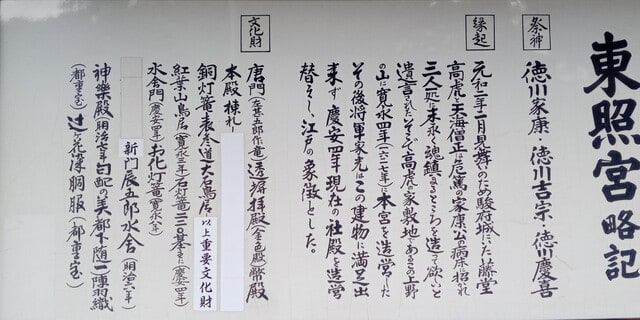 東照宮略記
祭神
徳川家康・徳川吉宗・徳川慶喜
縁起
元和二年二月見舞いのため駿府城にいた藤堂
高虎と天海僧正は危篤の家康公の病床に招かれ
三人一処に末永く魂鎮まるところを造って欲しいと
遺言された そこで高虎の家敷地であるこの上野
の山に寛永四年(一六二七年)に本宮を造営した
その後将軍家光はこの建物に満足出
来ず慶安四年現在の社殿を造営
替えし、江戸の象徴とした。
文化財
唐門(左甚五郎作の竜)透塀 拝殿(金色殿)幣殿
本殿 棟札
銅灯篭 表参道大石鳥居 以上重要文化財
紅葉山鳥居(寛永三年)石灯篭二二〇基(慶安四年)
水舎門(慶安四年)お化灯篭(寛永八年)
新門辰五郎水舎(明治六年)
神樂殿 明治七年 勾配の美都下随一 陣羽織
(都重宝)辻が花染胴服(都重宝)